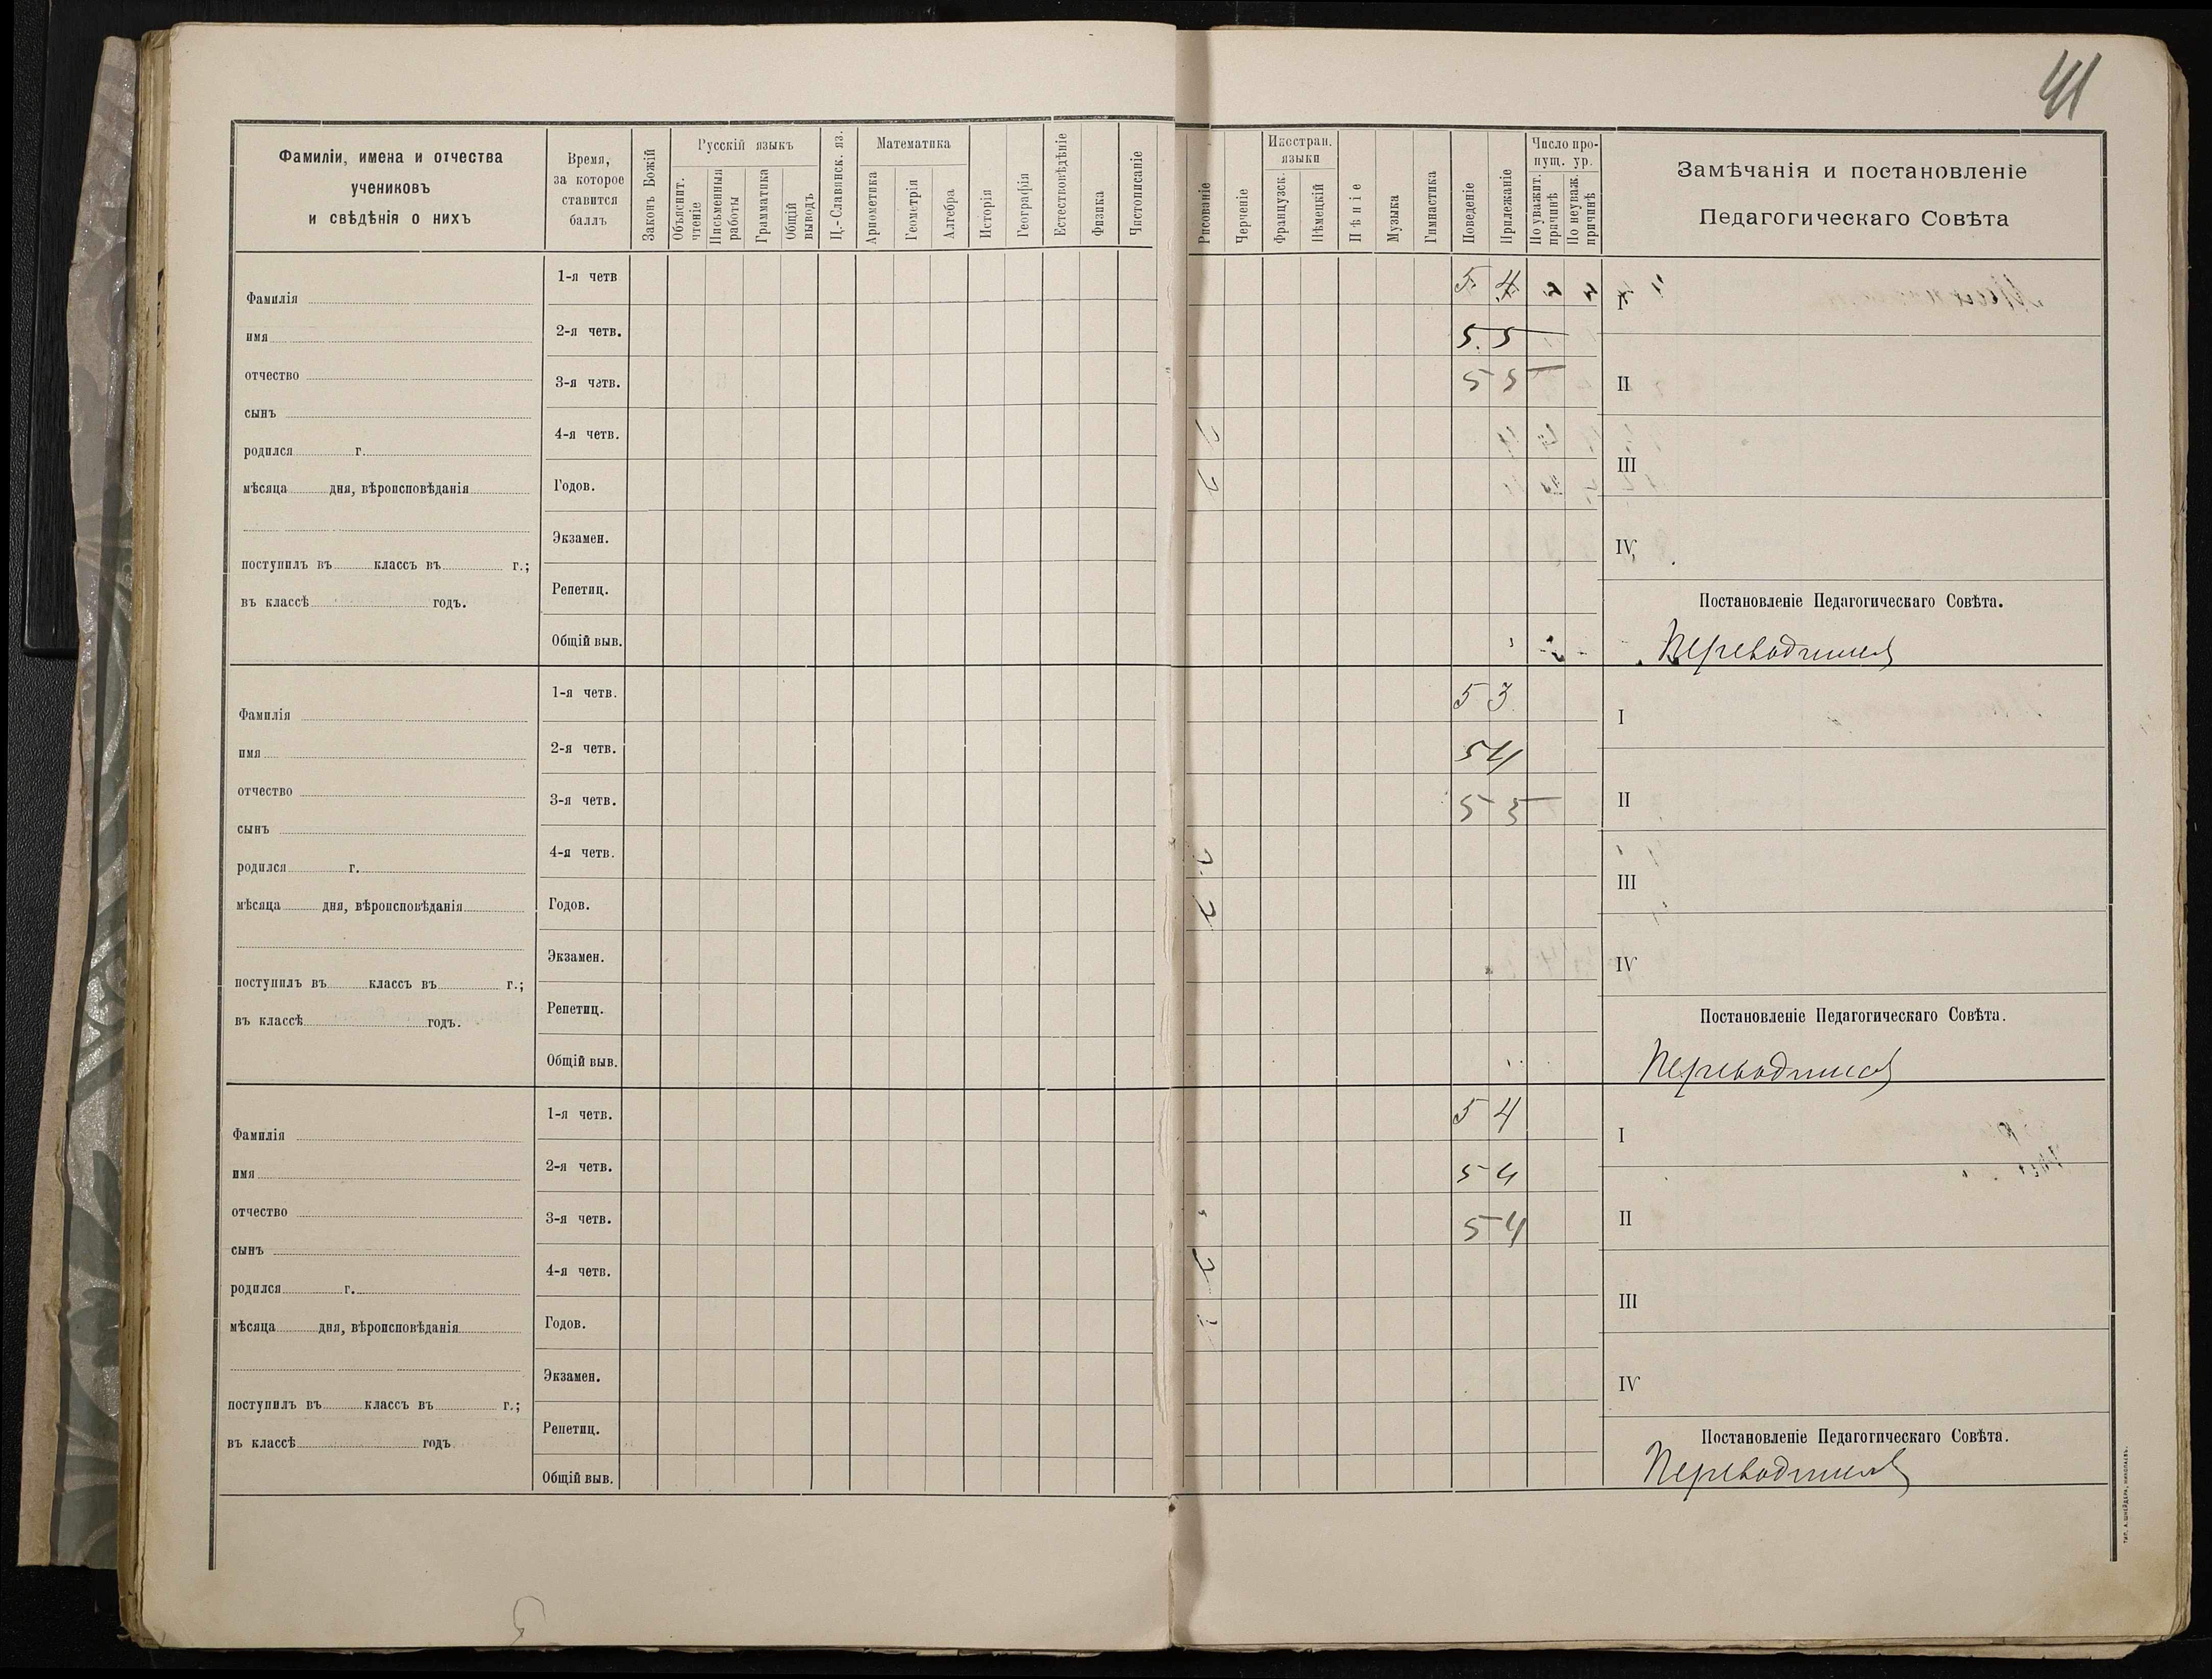 41
Фамиліи, имена и отчества
учениковъ
и свѣдѣнія о нихъ
Время,
за которое
ставится
баллъ
Законъ Божій
Русскій языкъ
Объяснит. чтеніе
Письменныя работы
Грамматика
Общій выводъ
Ц.-Славянск. яз.
Математика
Ариѳметика
Геометрія
Алгебра
Исторія
Географія
Естествовѣдѣніе
Физика
Чистописаніе
Рисованіе
Черченіе
Иностран. языки
Французск.
Нѣмецкій
Пѣніе
Музыка
Гимнастика
Поведеніе
Прилежаніе
Число пропущ. ур.
По уважит. причинѣ
По неуваж. причинѣ
Замѣчанія и постановленіе
Педагогическаго Совѣта
Фамилія
имя
отчество
сынъ
родился г.
мѣсяца дня, вѣроисповѣданія
поступилъ въ классъ въ г.;
въ классѣ годъ.
1-я четв 5 4
2-я четв. 5 5
3-я четв. 5 5
4-я четв.
Годов.
Экзамен.
Репетиц.
Общій выв.
I
II
III
IV
Постановленіе Педагогическаго Совѣта.
Переводится
Фамилія
имя
отчество
сынъ
родился г.
мѣсяца дня, вѣроисповѣданія
поступилъ въ классъ въ г.;
въ классѣ годъ.
1-я четв. 5 3
2-я четв. 5 4
3-я четв. 5 5
4-я четв.
Годов.
Экзамен.
Репетиц.
Общій выв.
I
II
III
IV
Постановленіе Педагогическаго Совѣта.
Переводится
Фамилія
имя
отчество
сынъ
родился г.
мѣсяца дня, вѣроисповѣданія
поступилъ въ классъ въ г.;
въ классѣ годъ
1-я четв. 5 4
2-я четв. 5 4
3-я четв. 5 4
4-я четв.
Годов.
Экзамен.
Репетиц.
Общій выв.
I
II
III
IV
Постановленіе Педагогическаго Совѣта.
Переводится
ТИП. А. ШНЕЙДЕРА, НИКОЛАЕВЪ.